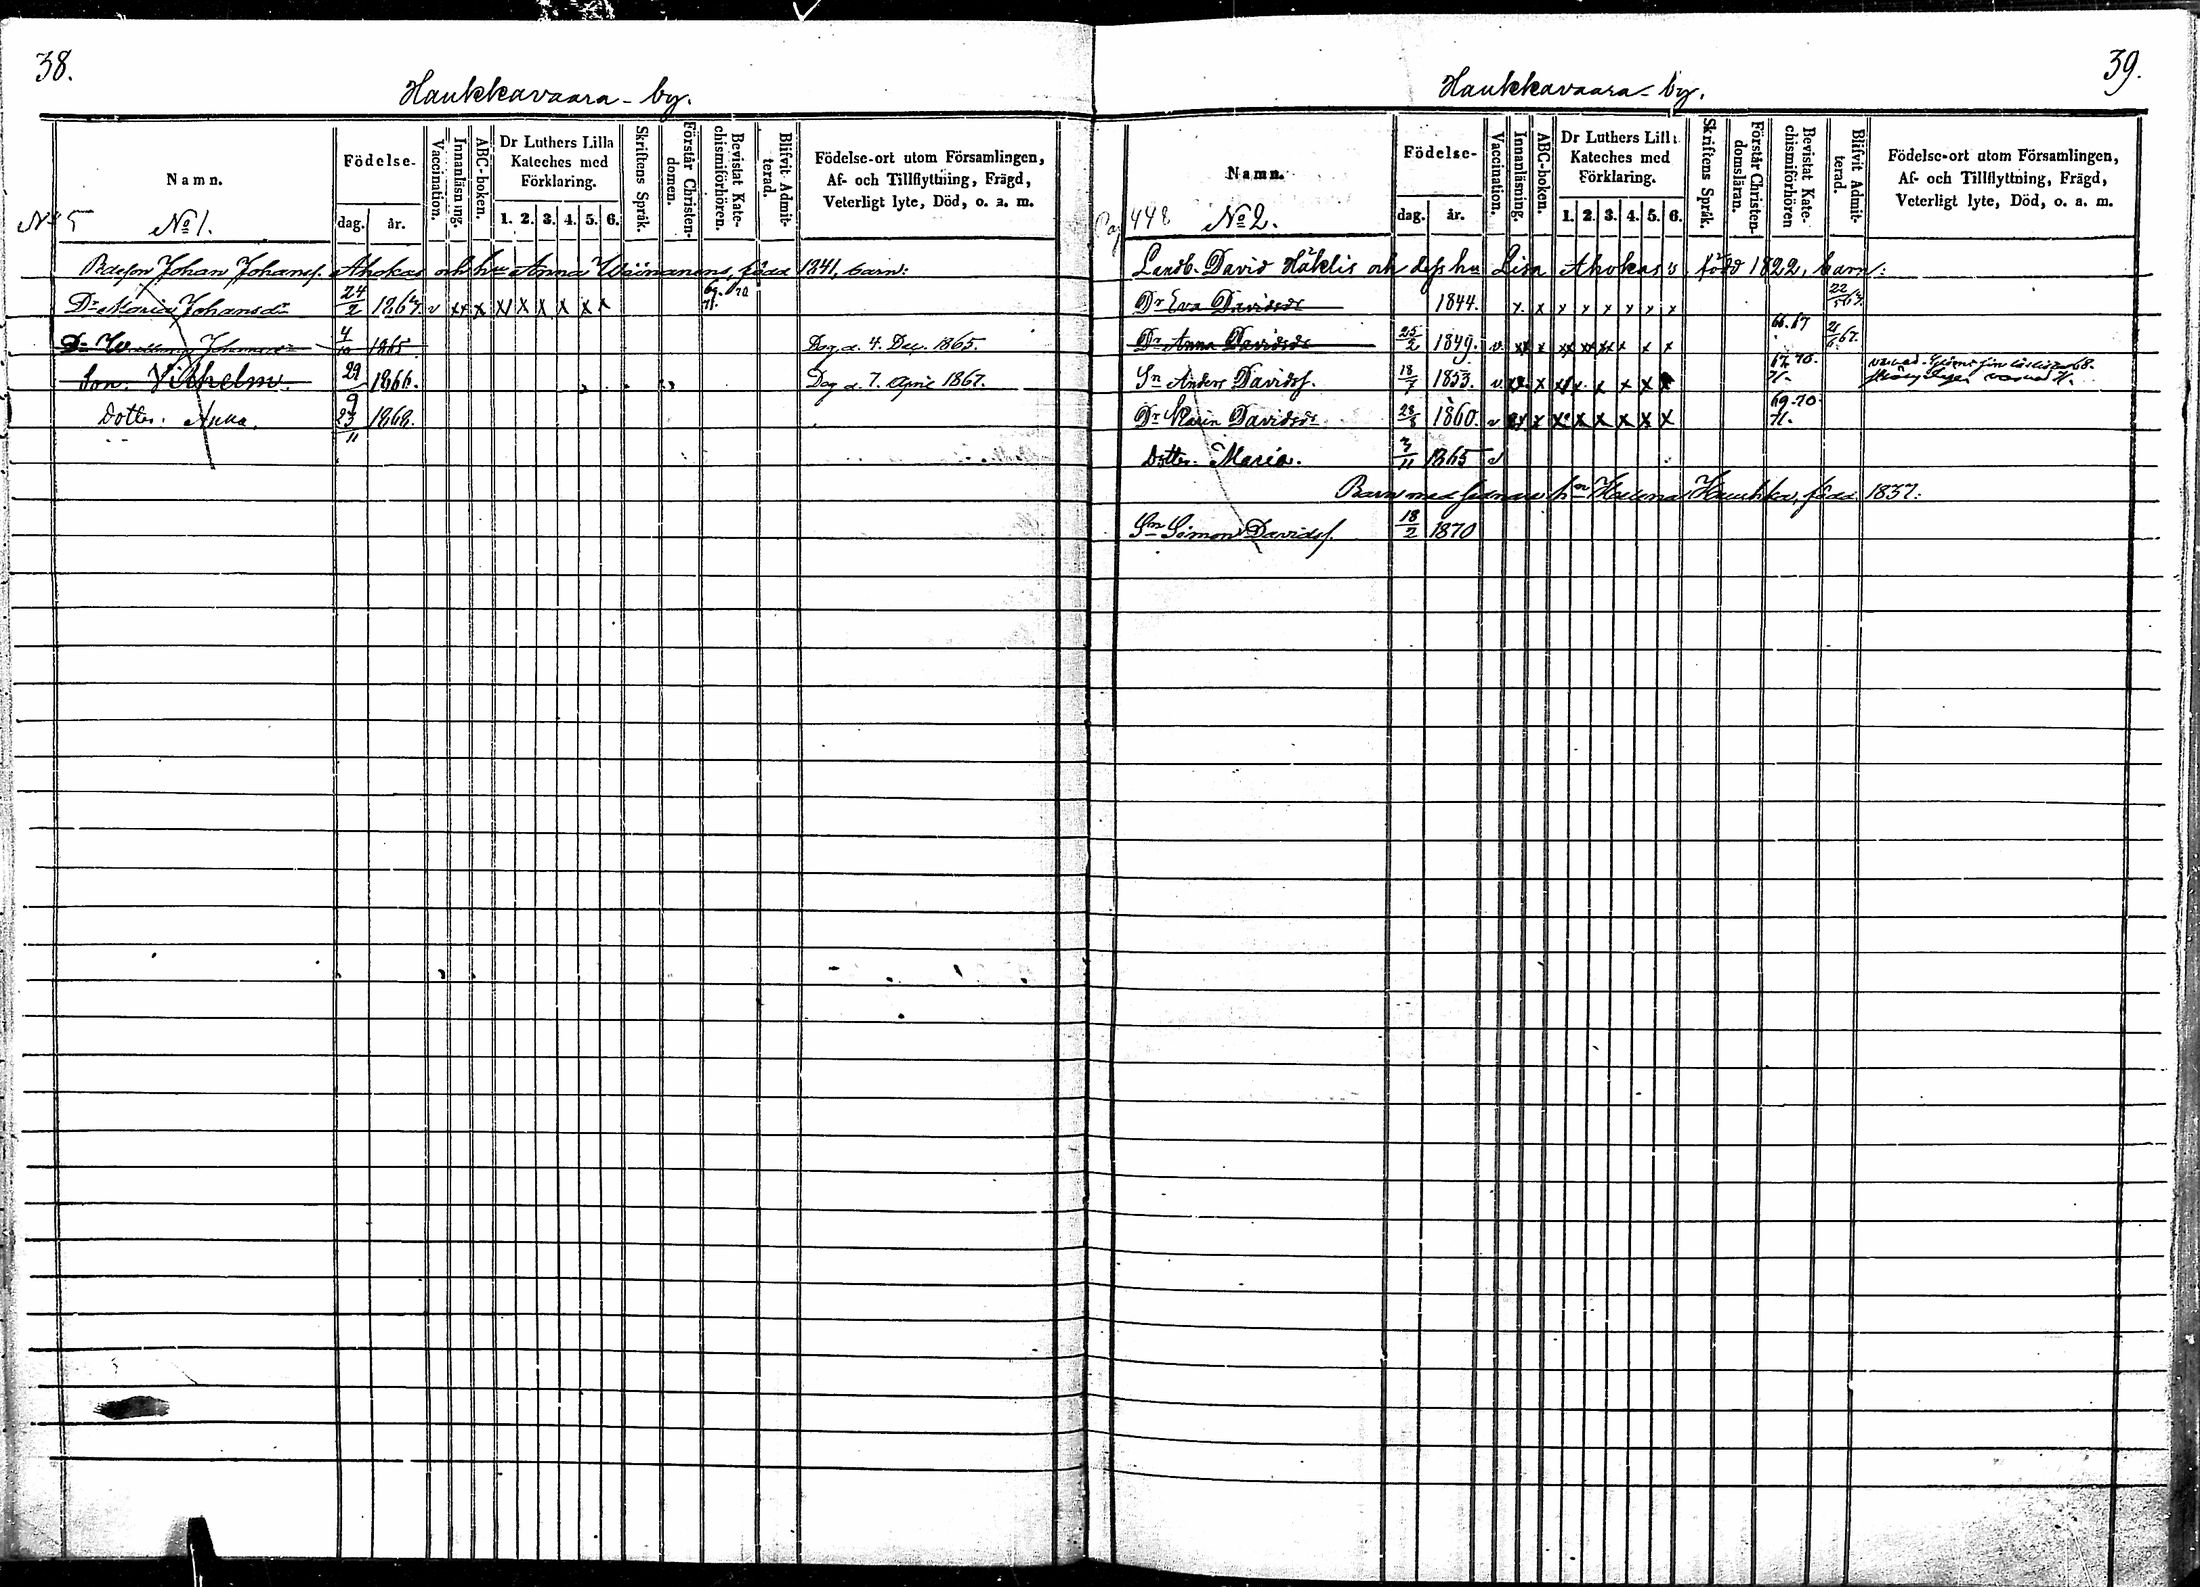 38.
Haukkavaara-by.
Namn.
Födelse-
dag. år.
Vaccination.
Innanläsning.
ABC-boken.
Dr Luthers Lilla Kateches med Förklaring.
1. 2. 3. 4. 5. 6.
Skriftens Språk.
Förstår Christen-domen.
Bevistat Kate-chismiförhören.
Blifvit Admit-terad.
Födelse-ort utom Församlingen,
Af- och Tillflyttning, Frägd,
Veterligt lyte, Död, o. a. m.
No 5 No 1.
Johan Johansf. Ahokas och hu Anna Wäinänens, född 1841, barn:
Dr Maria Johansdr 24/2 1864. v xx x x x x x x x 69. 70 71.
Dr Johansdr 4/10 1865 Dog d. 4. Dec. 1865.
Son. Vilhelm. 29/9 1866. Dog d. 7. April 1867.
Dotter. Anna. 23/11 1868.
39.
Haukkavaara-by.
Namn.
Födelse-
dag. år.
Vaccination.
Innanläsning.
ABC-boken.
Dr Luthers Lilla Kateches med Förklaring.
1. 2. 3. 4. 5. 6.
Skriftens Språk.
Förstår Christen-domsläran.
Bevistat Kate-chismiförhören
Blifvit Admit-terad.
Födelse-ort utom Församlingen,
Af- och Tillflyttning, Frägd,
Veterligt lyte, Död, o. a. m.
Pag 448 No 2.
Landb. David Häklis och dess hu Lisa Ahokas född 1822, barn:
Dr Eva Davidsdr 1844. x x x x x x x x
Dr Anna Davidsdr 25/2 1849. v. xx x xx xx xx x x x 66. 67 21/6 67.
Sn Anders Davidsf. 18/7 1853. v x x x x x x x 67. 70. 71.
Dr Karin Davidsdr 28/8 1860. v x x x x x x x 69. 70. 71.
Dotter. Maria. 3/11 1865 v
Barn med hu Helena född 1837:
Sn Simon Davidsf. 18/2 1870